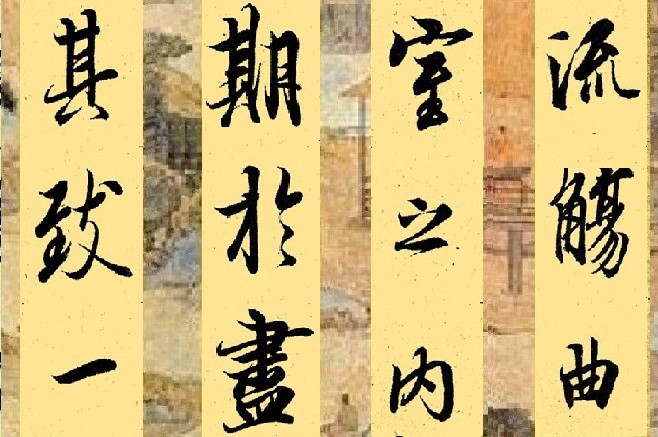 流觴曲
室之内
期於盡
其致一